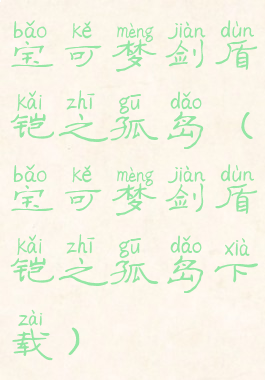 bǎo kě mèng jiàn dùn
宝可梦剑盾
kǎi zhī gū dǎo
铠之孤岛（
bǎo kě mèng jiàn dùn
宝可梦剑盾
kǎi zhī gū dǎo xià
铠之孤岛下
zài
载）